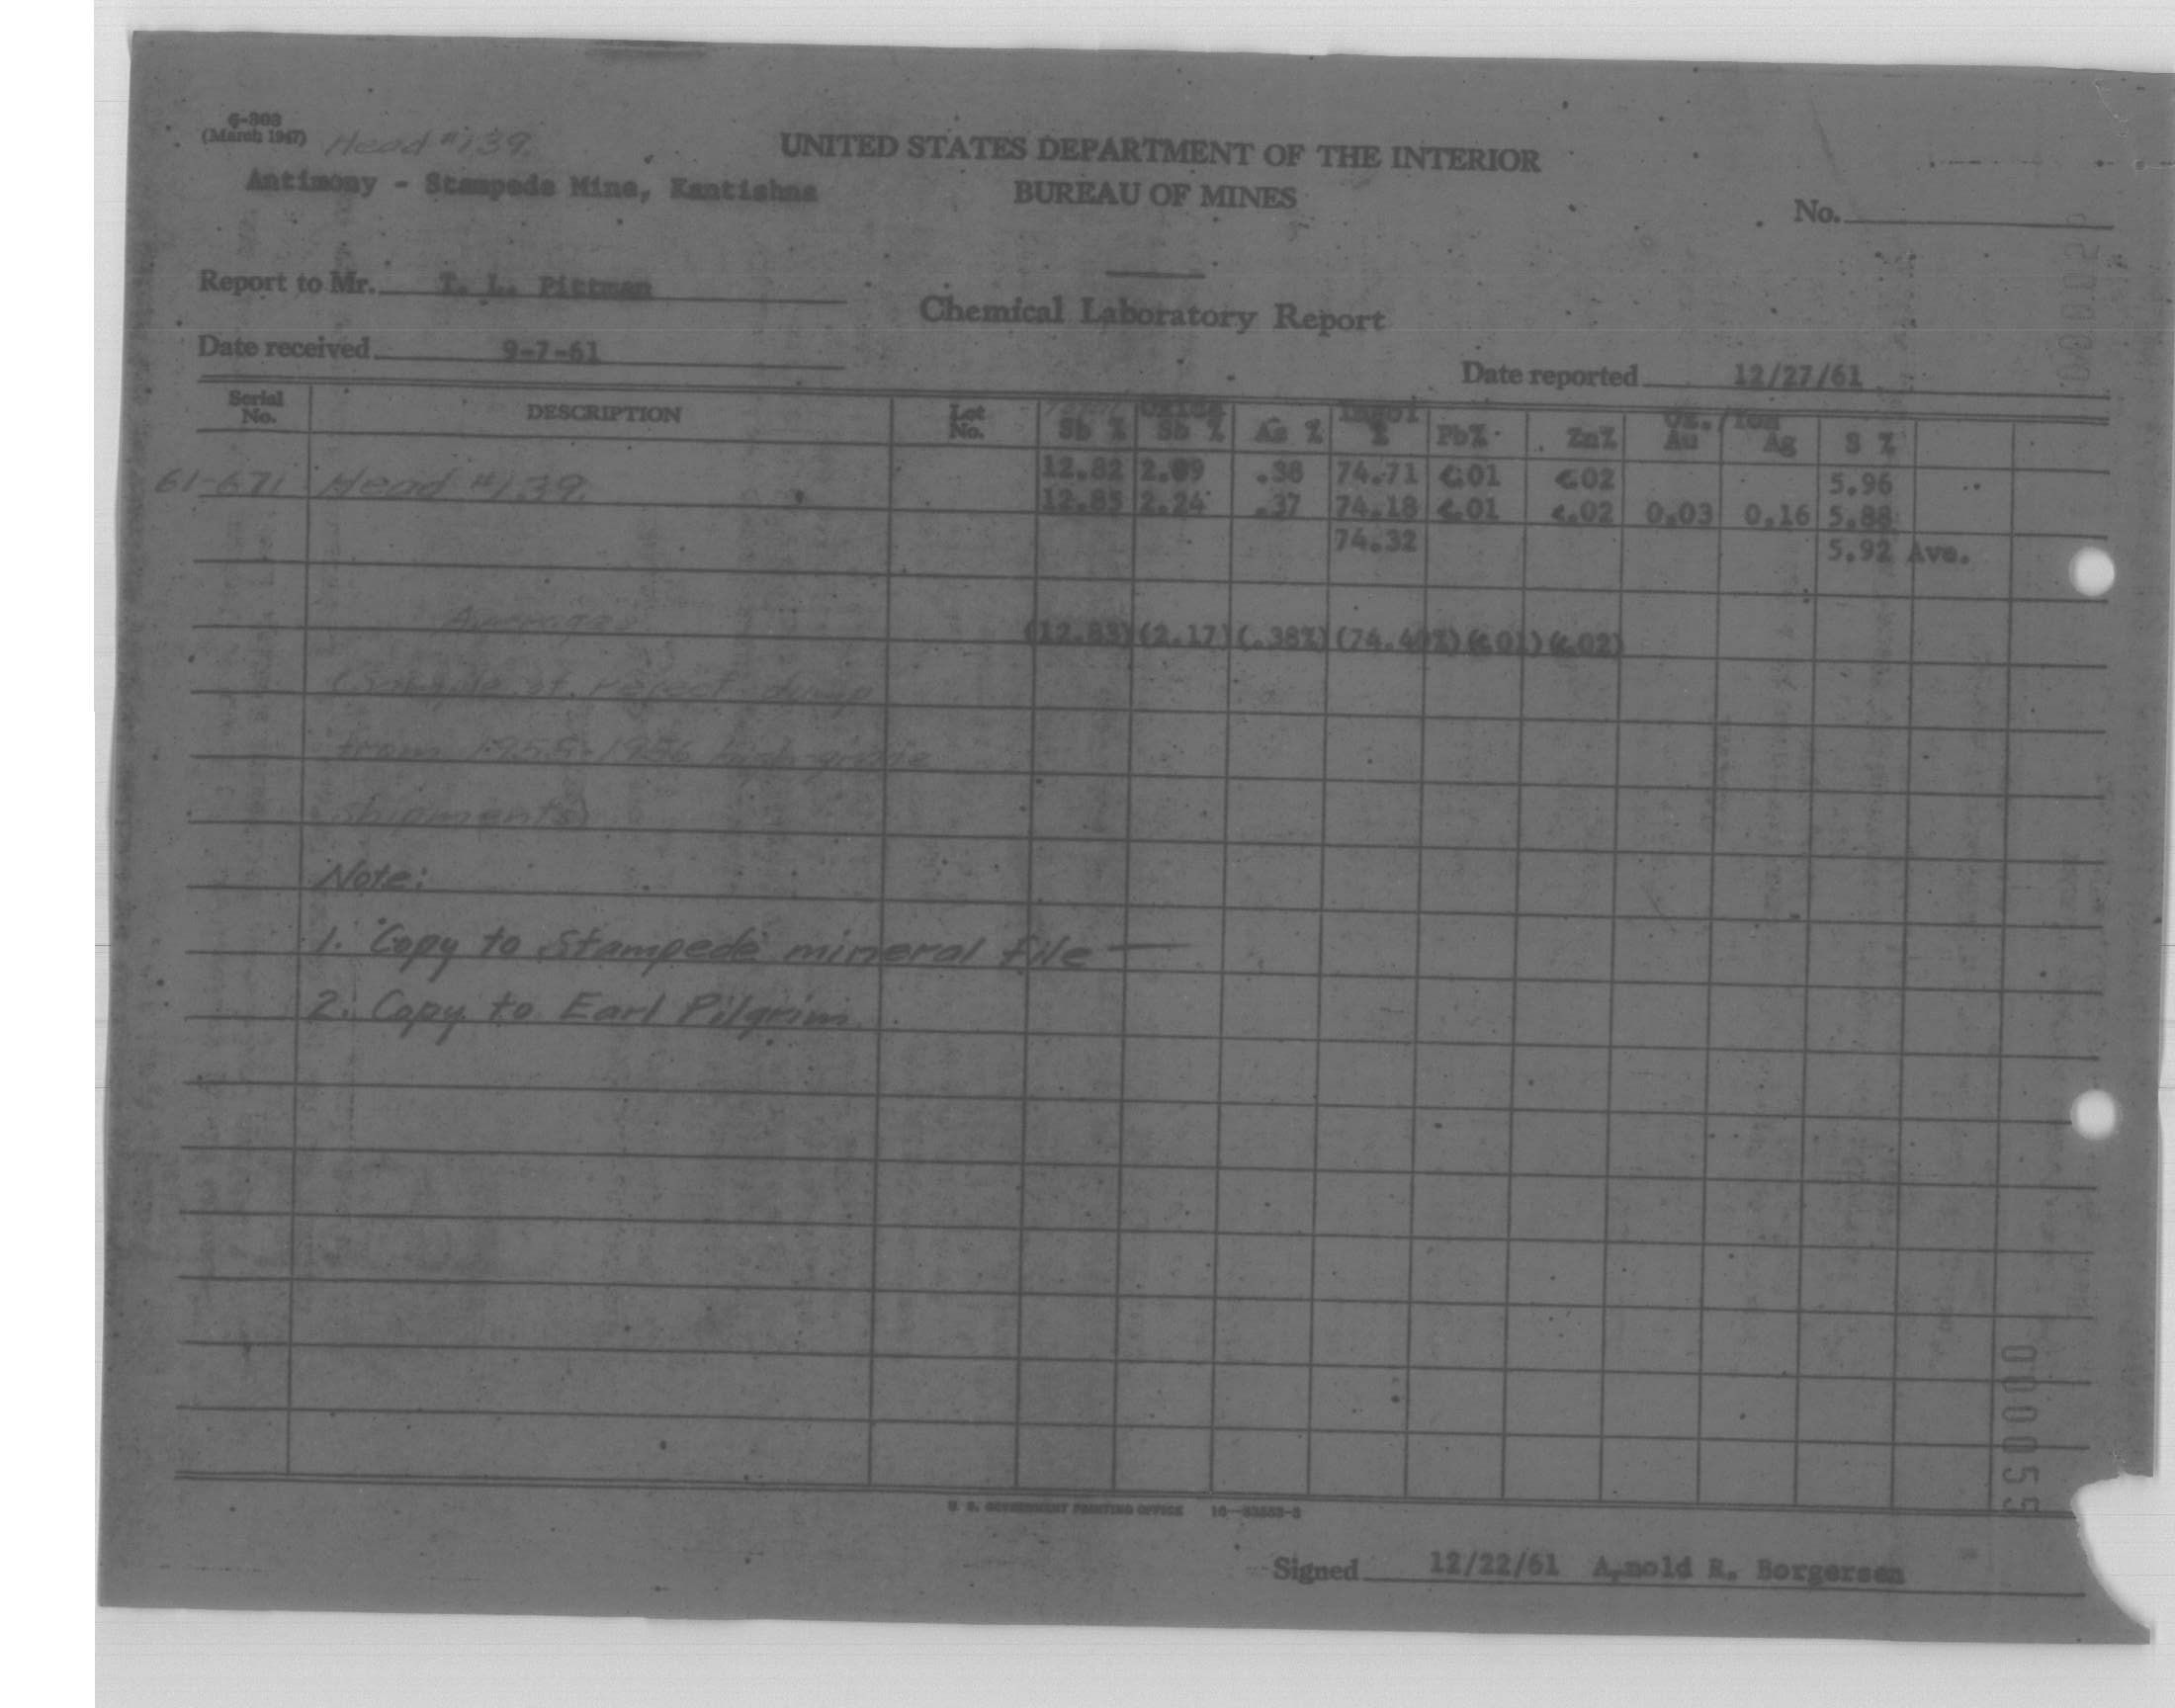 6-303
(March 1947) Head #139
UNITED STATES DEPARTMENT OF THE INTERIOR
Antimony - Stampede Mine, Kantishna
BUREAU OF MINES
No.
Report to Mr. T. L. Pittman
Chemical Laboratory Report
Date received 9-7-61
Date reported 12/27/61
Serial No. DESCRIPTION Lot No. Sb % Oxide Sb % As % Insol % Pb% Zn% Oz./Ton Au Ag S %
12.82 2.09 .38 74.71 <.01 <.02 5.96
61-671 Head #139
12.85 2.24 .37 74.18 <.01 <.02 0.03 0.16 5.88
74.32 5.92 Ave.
Average (12.83) (2.17) (.38%) (74.40%) (<.01) (<.02)
(Sample of reject dump
from 1955-1956 high grade
shipments)
Note:
1. Copy to Stampede mineral file —
2. Copy to Earl Pilgrim
000055
U. S. GOVERNMENT PRINTING OFFICE
Signed 12/22/61 Arnold R. Borgersen